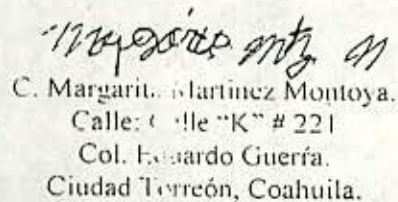 mtz M
C. Margarit.. Martinez Montoya.
Calle: "K" # 221
Col. Eduardo Guerra.
Ciudad Torreón, Coahuila.